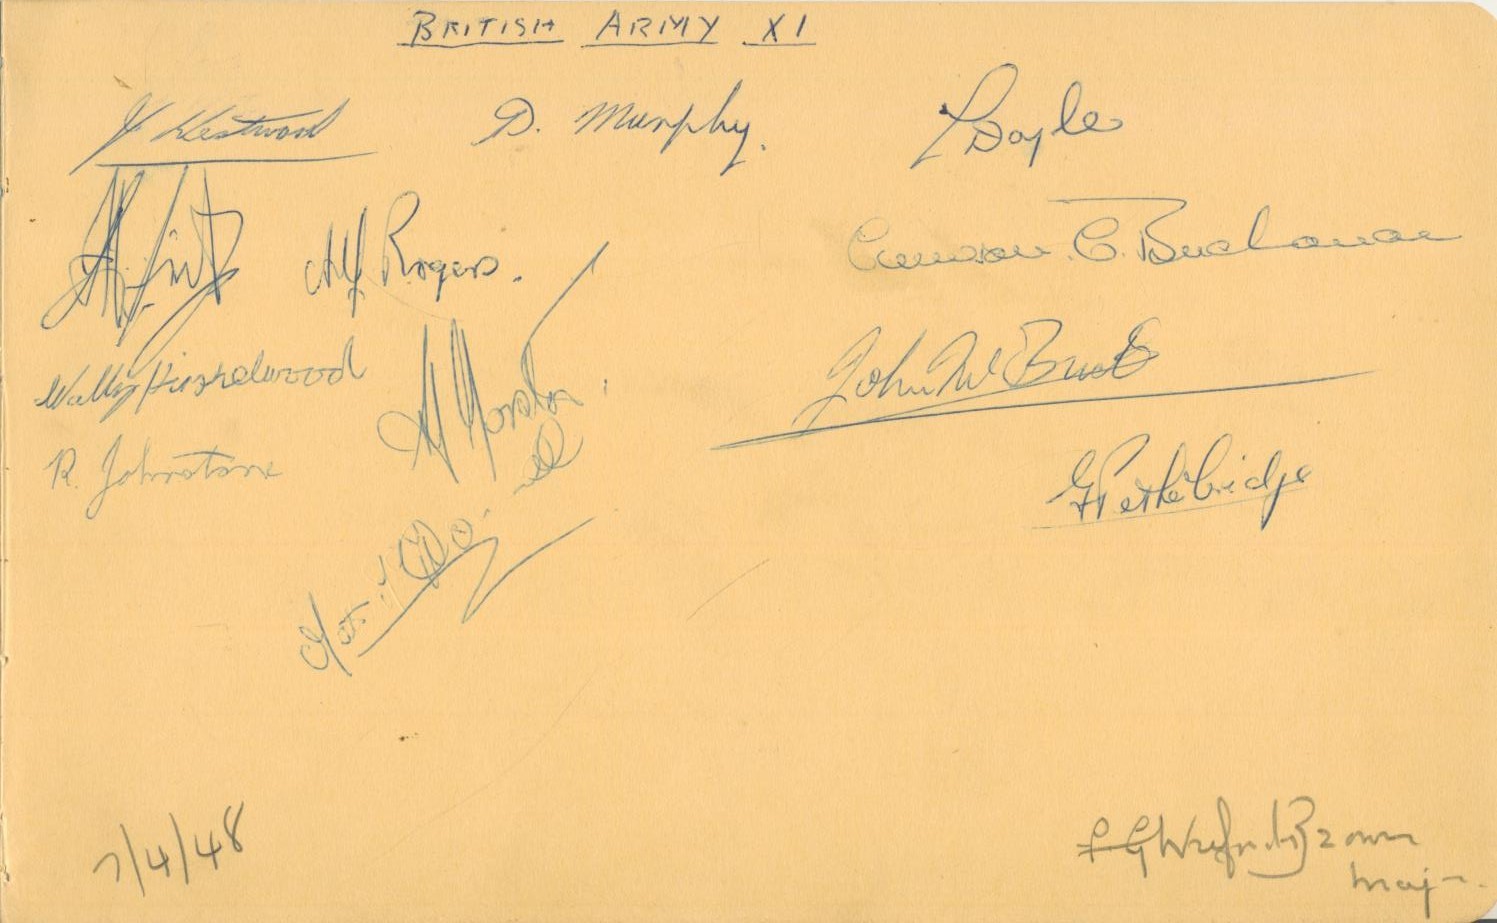 BRITISH ARMY XI
J. Westwood
D. Murphy.
L Doyle
Alf Rogers.
Cameron. C. Buchanan
Wally Hazzelwood
John W Buist
R. Johnstone
G Pethebridge
7/4/48
Brown
Major.